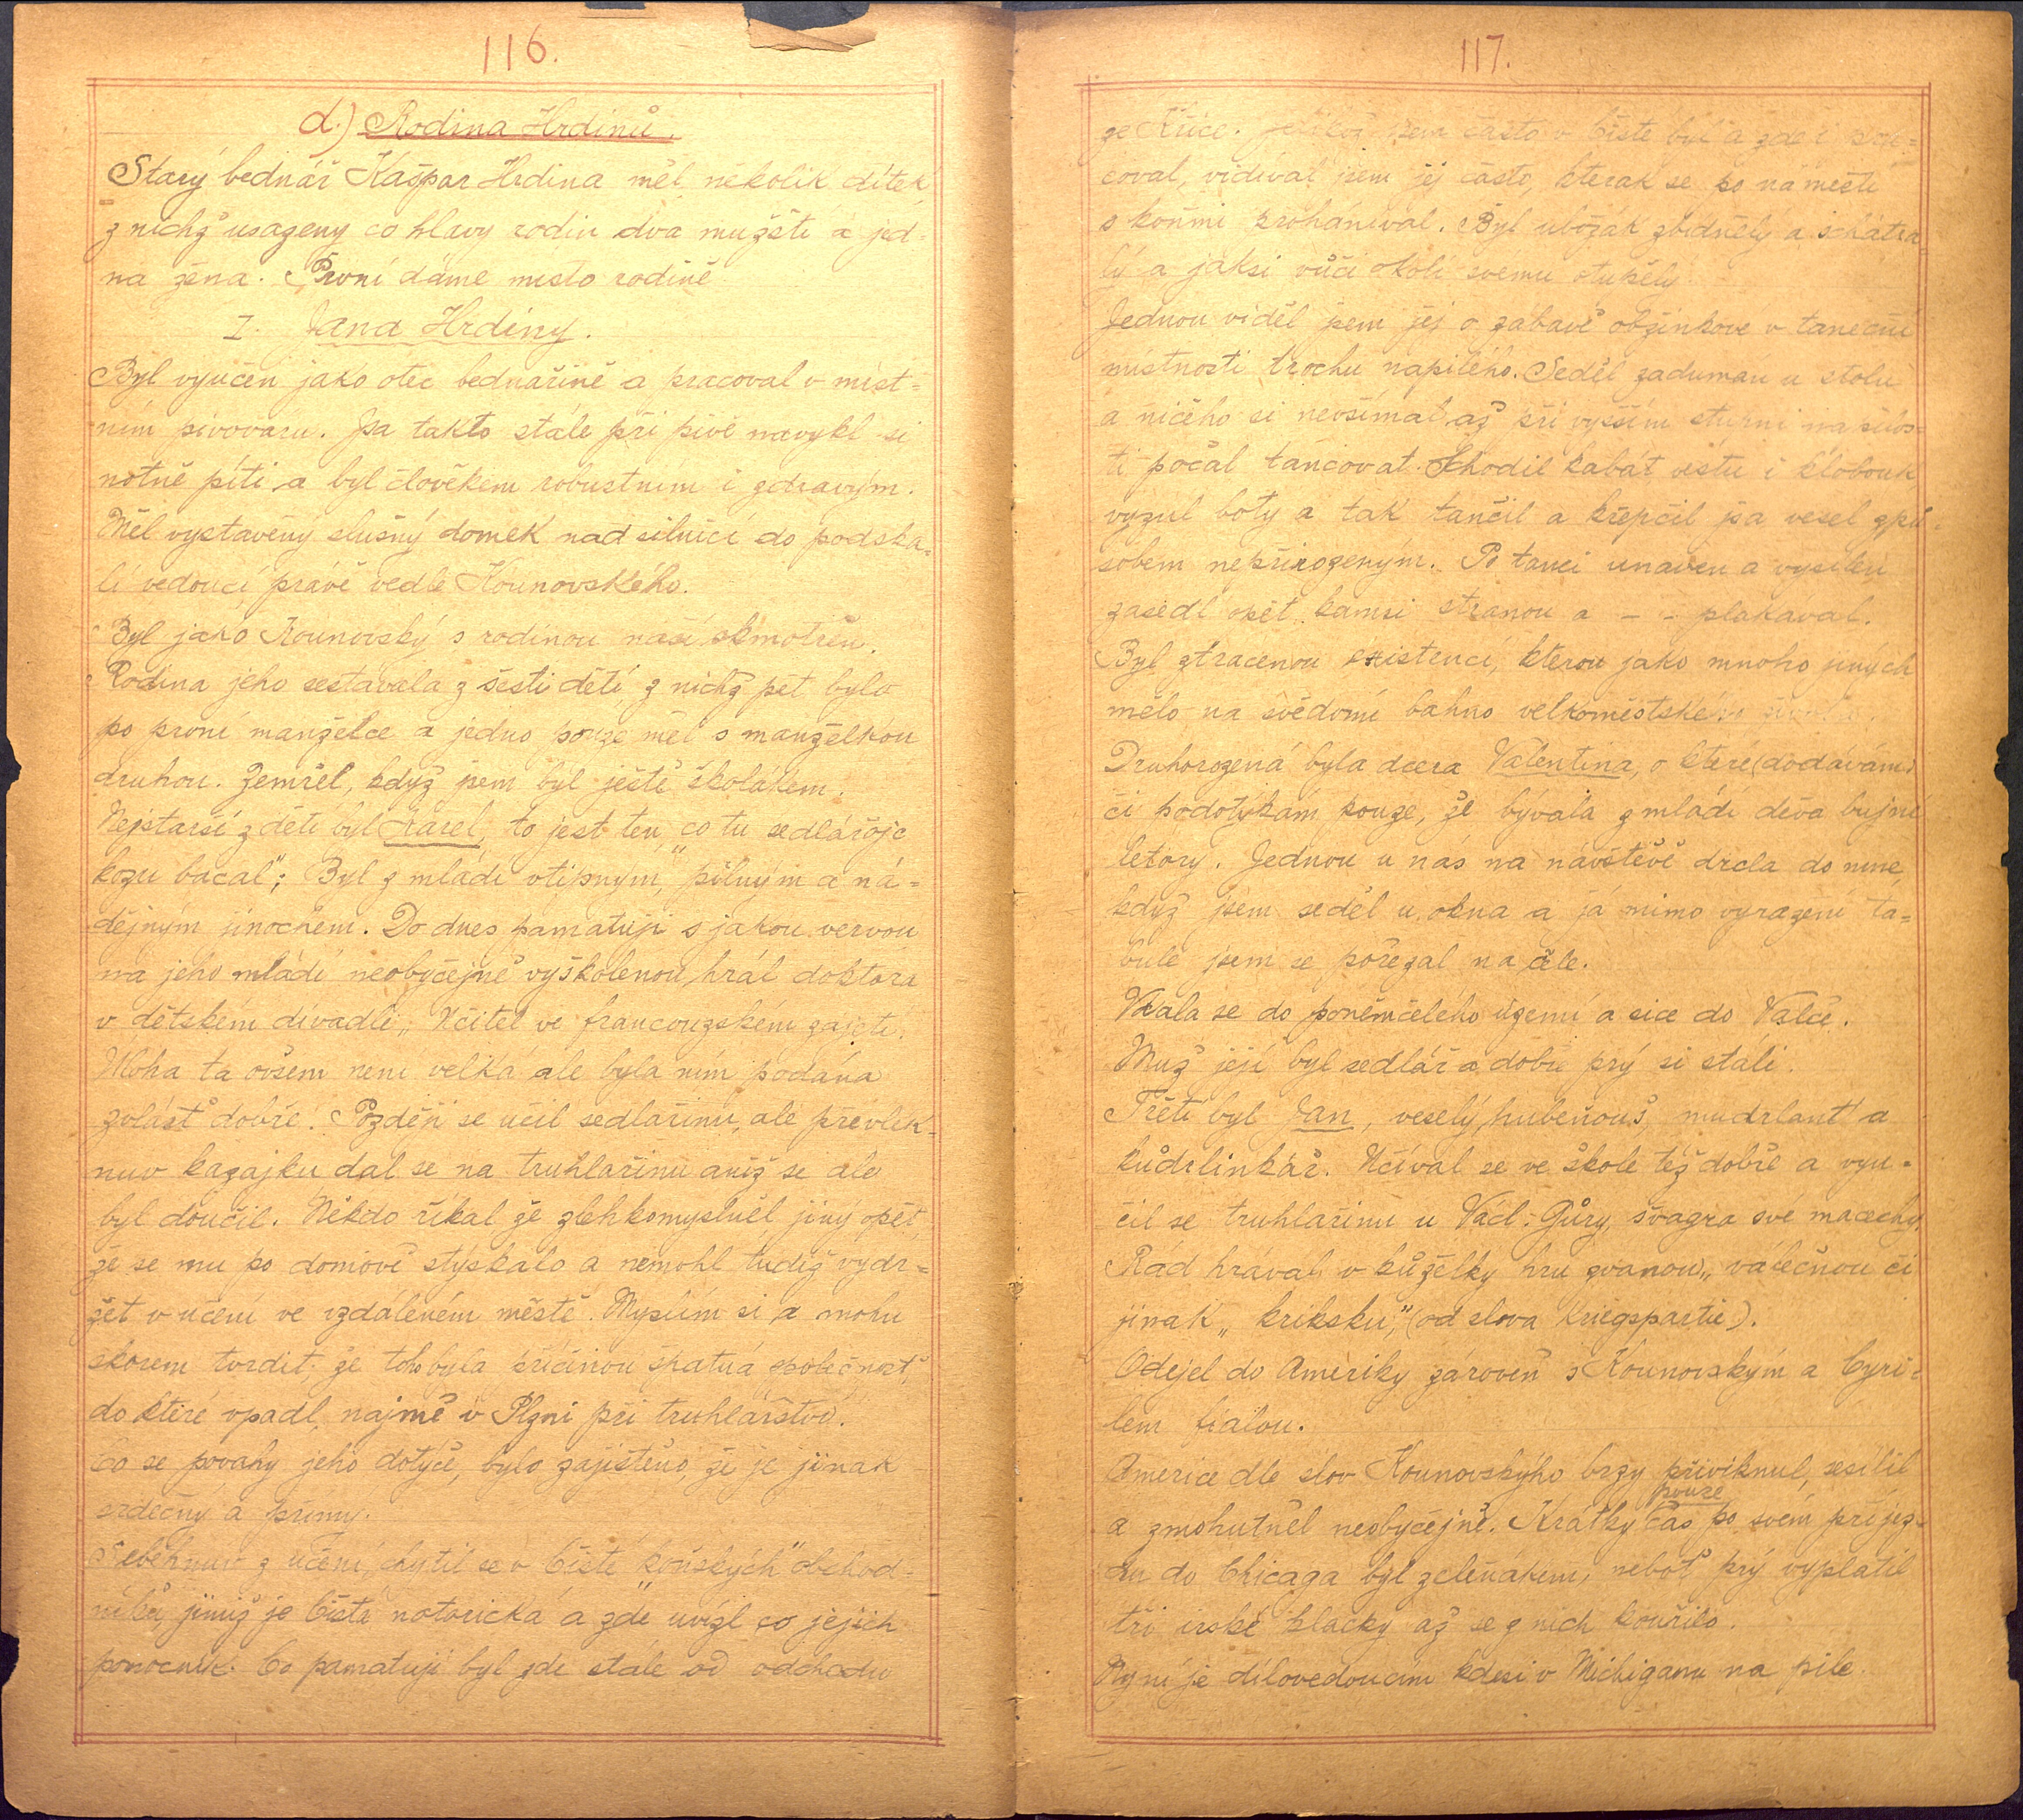 116.
d.) Rodina Hrdinů.
Starý bednář Kašpar Hrdina měl několik dítek
z nichž usazeny co hlavy rodin dva mužští a jed-
na žena. První dáme místo rodině
I. Jana Hrdiny.
Byl vyučen jako otec bednařině a pracoval v míst=
ním pivovaru. Jsa takto stále při pivě navykl si
notně píti a byl člověkem robustním i zdravým.
Měl vystavěný slušný domek nad silnicí do podska=
lí vedoucí právě vedle Kounovského.
Byl jako Kounovský s rodinou naší skmotřen.
Rodina jeho sestávala z šesti dětí z nichž pět bylo
po první manželce a jedno pouze měl s manželkou
druhou. Zemřel, když jsem byl ještě školákem.
Nejstarší z dětí byl Karel, to jest ten „co tu sedlářojc
kozu bacal"; Byl z mládí vtipným, pilným a ná=
dějným jinochem. Do dnes pamatuji s jakou vervou
na jeho mládí neobyčejně vyškolenou hrál doktora
v dětském divadle „Učitel ve francouzském zajetí.
Úloha ta ovšem není velká ale byla ním podána
zvlášť dobře. Později se učil sedlařinu, ale převlek-
nuv kazajku dal se na truhlařinu aniž se ale
byl doučil. Někdo říkal že zlehkomyslněl jiný opět
že se mu po domově stýskalo a nemohl tudíž vydr=
žet v učení ve vzdáleném městě. Myslím si a mohu
skorem tvrdit, že toho byla příčinou špatná společnost,
do které vpadl, najmě v Plzni při truhlářství.
Co se povahy jeho dotýče, bylo zajištěno, že je jinak
srdečný a přímý.
Seběhnuv z učení, chytil se v Čisté „koňských" obchod-
níků, jimiž je Čistá notorická a zde uvízl co jejich
pomocník. Co pamatuji byl zde stále od odchodu
117.
ze Kříče. jsem často v Čisté byl a zde i
coval, vídíval jsem jej často, kterak se po náměstí
s koňmi proháníval. Byl ubožák zbídnělý a schátra
lý a jaksi vůči okolí svemu otupělý.
Jednou viděl jsem jej o zábavě obžínkové v taneční
místnosti trochu napilého. Seděl zaduman u stolu
a ničeho si nevšímal, až při vyšším stupni napilos=
ti počal tancovat. Shodil kabát vestu i klobouk,
vyzul boty a tak tančil a křepčil jsa vesel způ-
sobem nepřirozeným. Po tanci unaven a vysílen
zasedl opět kamsi stranou a - - plakával.
Byl ztracenou existencí, kterou jako mnoho jiných
mělo na svědomí bahno velkoměstského života.
Druhorozená byla dcera Valentina, o které (dodávám)
či podotýkám pouze, že bývala z mládí děva bujné
letory. Jednou u nás na návštěvě drcla do mne,
když jsem seděl u okna a já mimo vyražení ta=
bule jsem se pořezal na čele.
Vdala se do poněmčelého území a sice do Valče.
Muž její byl sedlář a dobře prý si stáli.
Třetí byl Jan, veselý hubeňouš, mudrlant a
kudrlinkář. Učíval se ve škole též dobře a vyu=
čil se truhlařinu u Václ. Gůry, švagra své macechy.
Rád hrával v kuželky hru zvanou „válečnou či
jinak „kriksku," (od slova Kriegspartie).
Odejel do Ameriky zároveň s Kounovským a Cyri=
lem fialou.
Americe dle slov Kounovskýho brzy přiviknul, sesílil
a zmohutněl neobyčejně. Krátký pouze čas po svém příjez-
du do Chicaga byl zeleňákem, neboť prý vyplatil
tři irské klacky až se z nich kouřilo.
Nyní je dílovedoucím kdesi v Michiganu na pile.